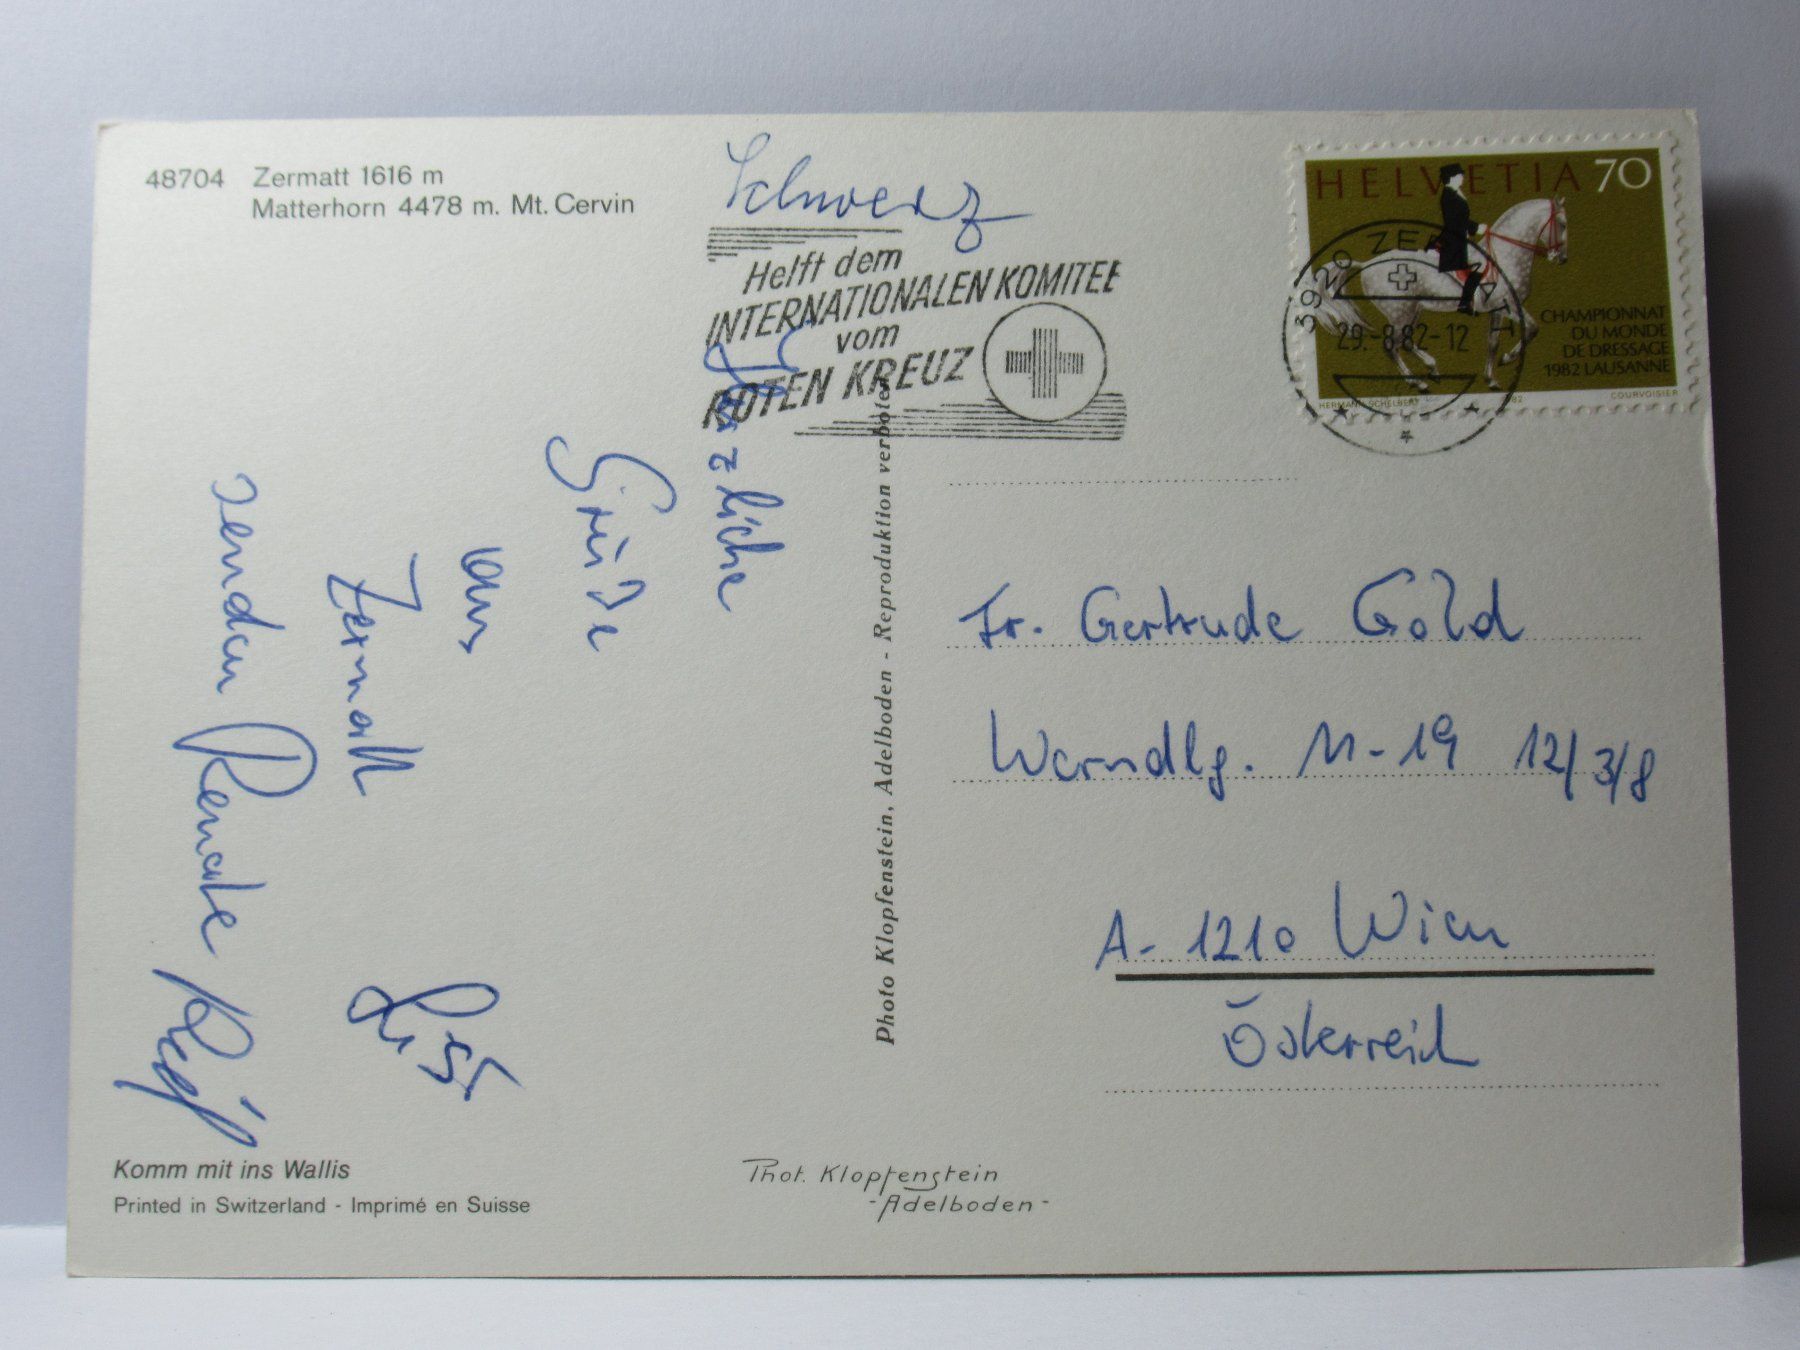 48704 Zermatt 1616 m
Matterhorn 4478 m. Mt. Cervin
Schweiz
Helft dem
INTERNATIONALEN KOMITEE
vom
ROTEN KREUZ
HELVETIA 70
CHAMPIONNAT
DU MONDE
DE DRESSAGE
1982 LAUSANNE
COURVOISIER
3920 ZERMATT
29.-8.82-12
Herzliche
Grüße
aus
Zermatt
senden Renate
Photo Klopfenstein, Adelboden - Reproduktion verboten
Fr. Gertrude Gold
M-19 12/3/8
A-1210 Wien
Österreich
Komm mit ins Wallis
Printed in Switzerland - Imprimé en Suisse
Phot. Klopfenstein
-Adelboden-